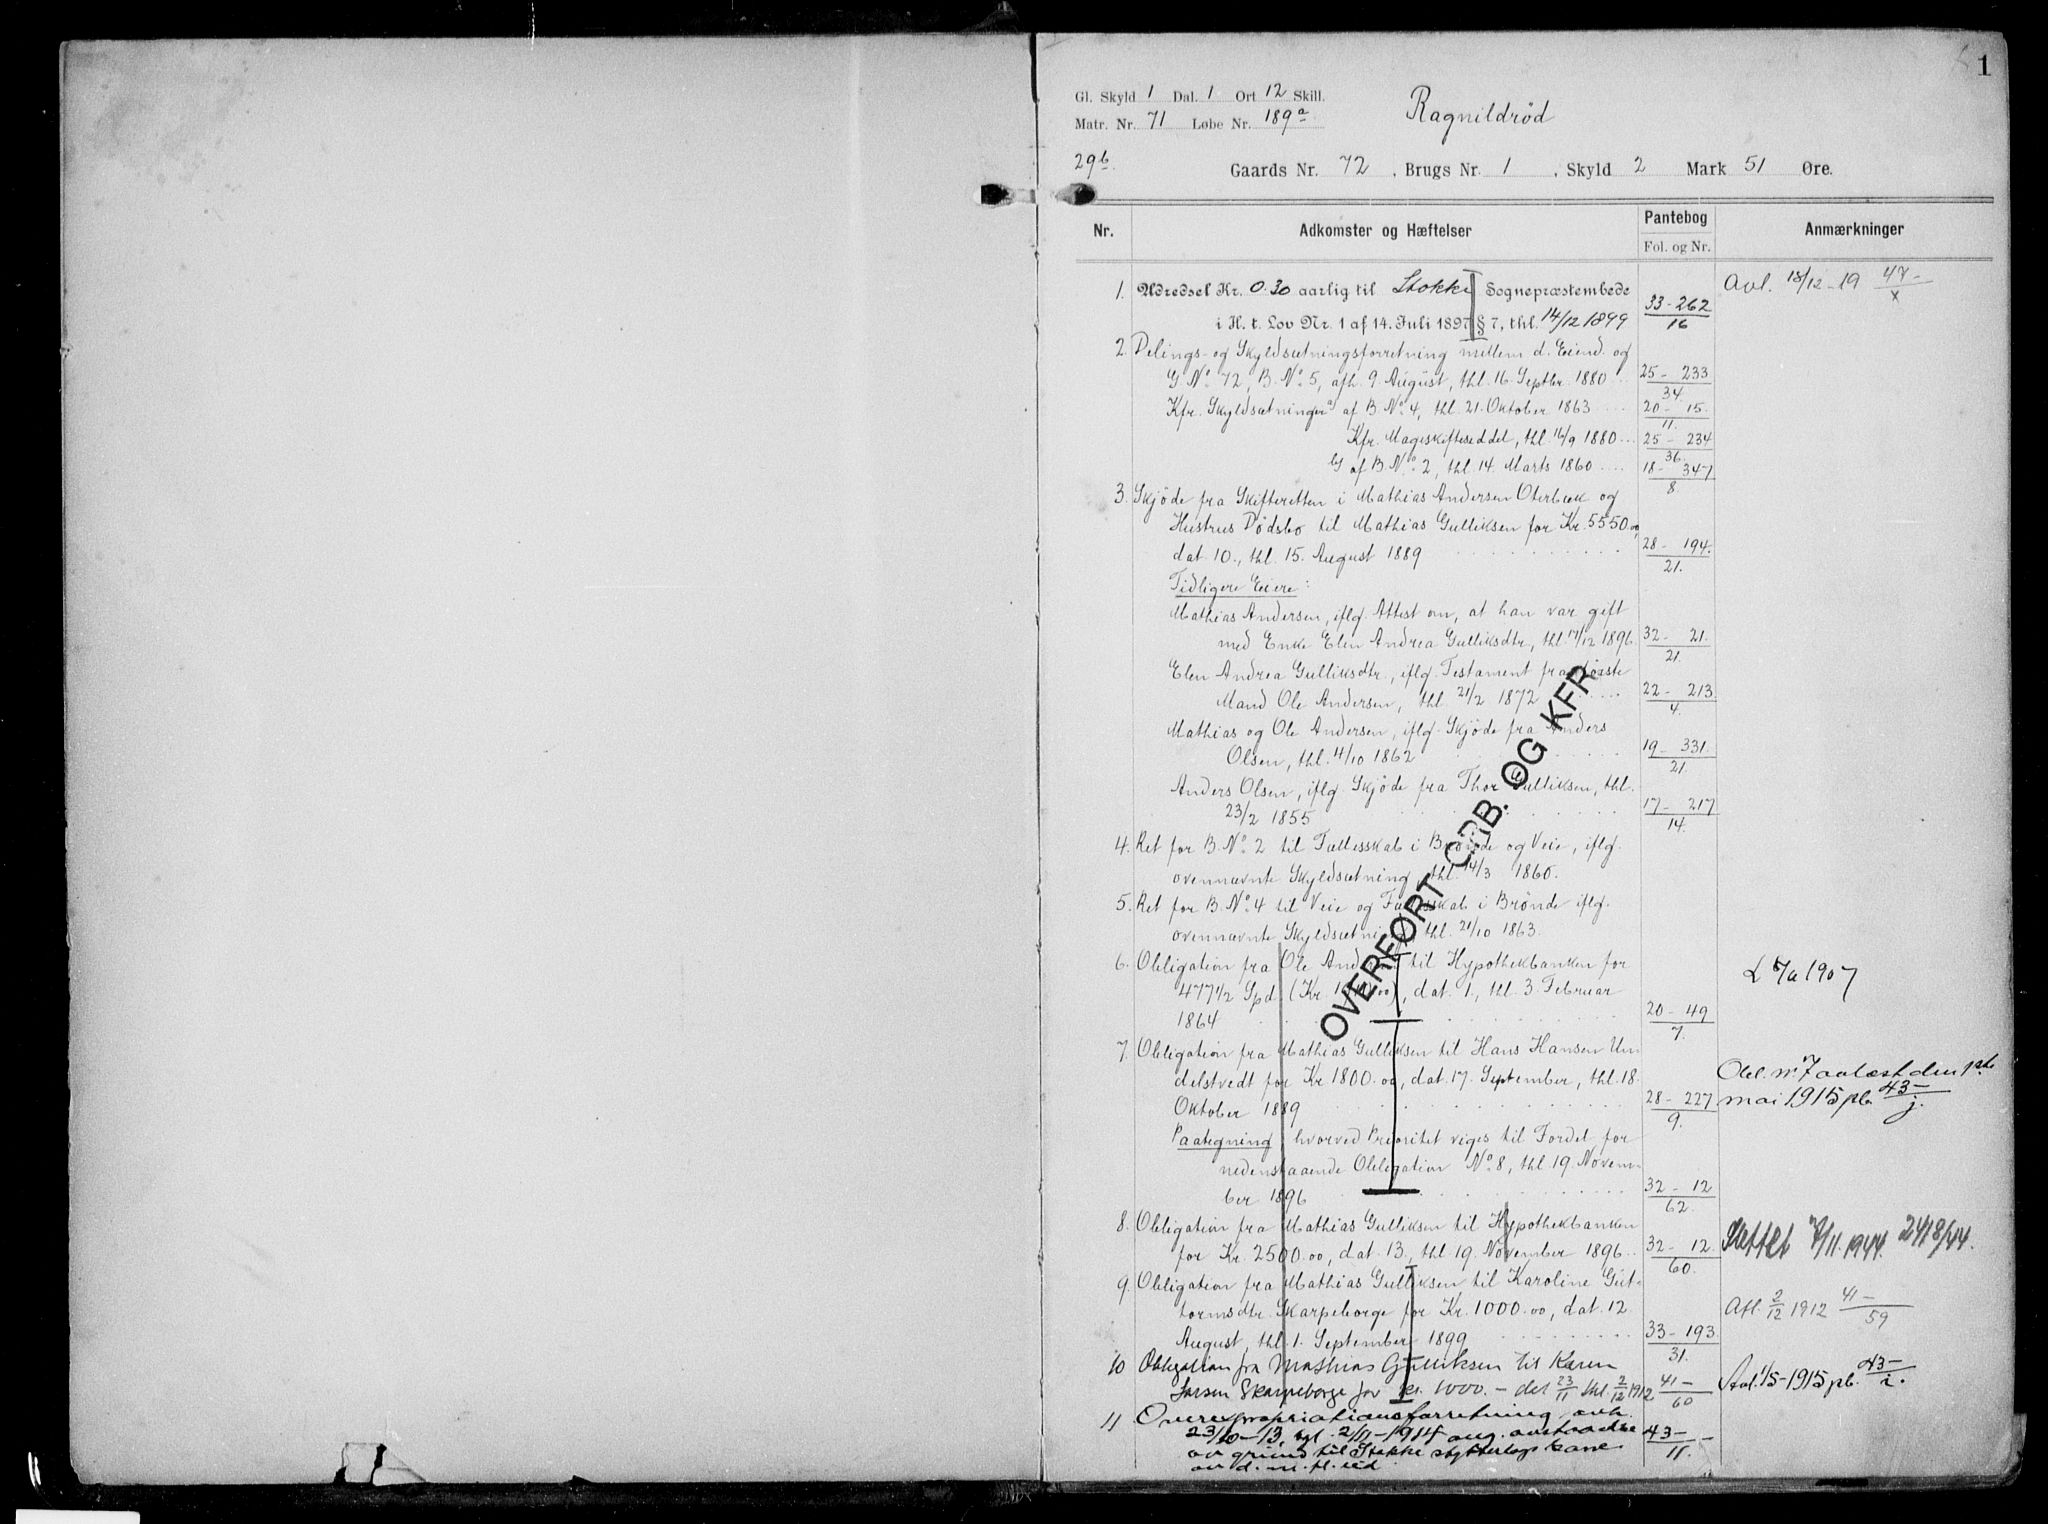 1
Gl. Skyld 1 Dal. 1 Ort 12 Skill.
Matr. Nr. 71 Løbe Nr. 189a
Ragnildrød
29b. Gaards Nr. 72, Brugs Nr. 1, Skyld 2 Mark 51 Øre.
Nr. Adkomster og Hæftelser Pantebog Anmærkninger
Fol. og Nr.
1. Udredsel Kr. 0.30 aarlig til Stokke Sognepræstembede Avl. 18/12-19 47-/x
i H. t. Lov Nr. 1 af 14. Juli 1897 § 7, thl. 14/12 1899 33-262/16
2. Delings- og Skyldsætningsforretning mellem d. Eiend. og
G. No. 72, B. No. 5, afh. 9. August, thl. 16. Septbr. 1880 25-233/34.
Kfr. Skyldsætninger af B. No. 4, thl. 21. Oktober 1863 .... 20-15./11.
Kfr. Mageskifteseddel, thl. 16/9 1880 ... 25-234/36.
af B. No. 2, thl. 14. Marts 1860 .... 18-347/8.
3. Skjøde fra Skifteretten i Mathias Andersen Oterbæk og
Hustrus Dødsbo til Mathias Gulliksen for Kr. 5550.00,
dat. 10., thl. 15. August 1889 28-194./21.
Tidligere Eiere:
Mathias Andersen, iflg. Attest om, at han var gift
med Enke Elen Andrea Gulliksdtr., thl. 17/12 1896. 32-21./21.
Elen Andrea Gulliksdtr., iflg. Testament fra første
Mand Ole Andersen, thl. 21/2 1872 22-213./4.
Mathias og Ole Andersen, iflg. Skjøde fra Anders
Olsen, thl. 4/10 1862 19-331./21.
Anders Olsen, iflg. Skjøde fra Thor Gulliksen, thl.
23/2 1855 17-217/14.
4. Ret for B. No. 2 til Fællesskab i Brønde og Veie, iflg.
ovennævnte Skyldsætning, thl. 14/3 1860.
5. Ret for B. No. 4 til Veie og Fællesskab i Brønde iflg.
ovennævnte Skyldsætning, thl. 21/10 1863.
OVERFØRT GRB. OG KFR
6. Obligation fra Ole Andersen til Hypothekbanken for
477 1/2 Spd. (Kr. 1910.00), dat. 1., thl. 3. Februar
1864 20-49/7.
1907
7. Obligation fra Mathias Gulliksen til Hans Hansen Un-
delstvedt for Kr. 1800.00, dat. 17. September, thl. 18.
Oktober 1889 28-227/9.
Obl. nr. 7 avlæst den 1ste
mai 1915 pb. 43-/j.
Paategning, hvorved Prioritet viges til Fordel for
nedenstaaende Obligation No. 8, thl. 19. Novem-
ber 1896 32-12/62.
8. Obligation fra Mathias Gulliksen til Hypothekbanken
for Kr. 2500.00, dat. 13., thl. 19. November 1896 .. 32-12./60.
Slettet /11 1944. 2418/44.
9. Obligation fra Mathias Gulliksen til Karoline Gut-
tormsdtr. Skarpeborge for Kr. 1000.00, dat. 12
August, thl. 1. September 1899 33-193/31.
Afl. 2/12 1912 41-/59
10 Obligation fra Mathias Gulliksen til Karen
Larsen Skarpeborge for kr. 1000.- dat 23/11 thl. 2/12 1912 41-/60
Avl. 1/5-1915 pb. 43-/i.
11 Overexpropriationsforretning avh.
23/10-13, tgl. 2/11-1914 ang. avstaaelse 43-/11.
av grund til Stokke skytterlags bane
av d. m. fl. eid.